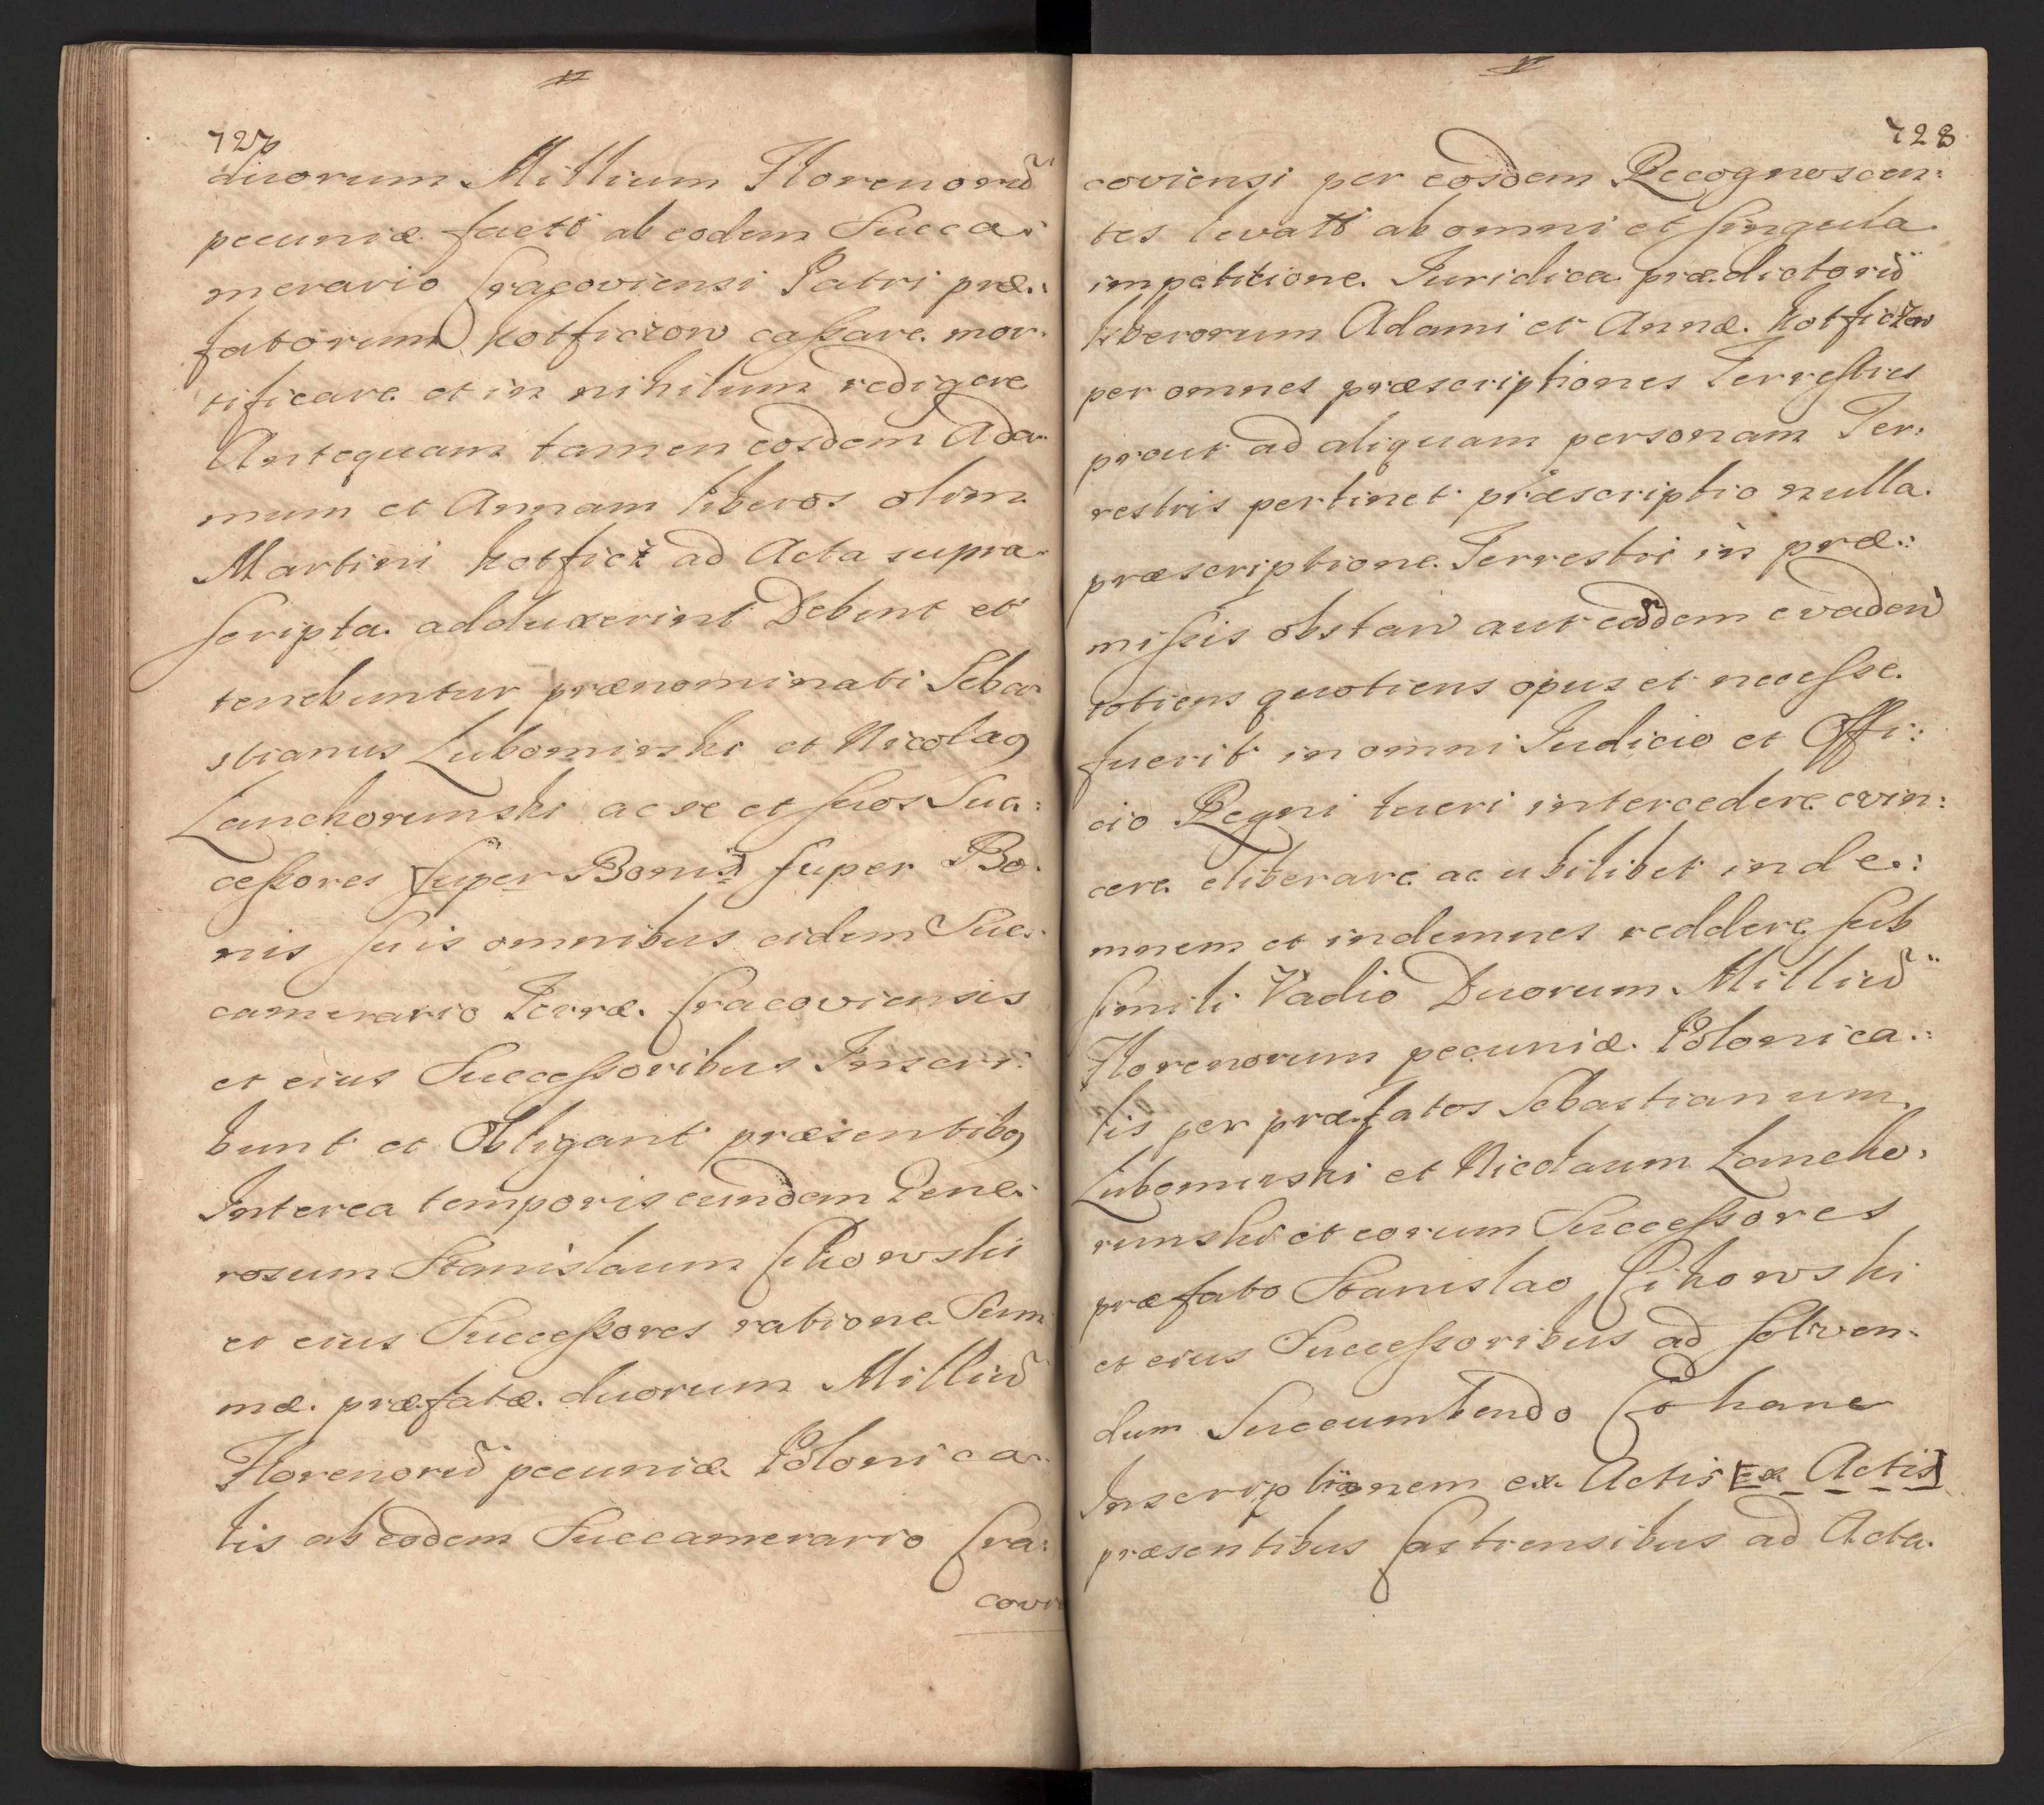 727
duorum Millium Florenorũ
pecuniæ factō ab eodem Succa:
merario Cracoviensi Patri præ:
fatorum Kotficzow caſsare mor:
tificare et in nihilum redigere
Antequam tamen eosdem Ada:
mum et Annam liberos olim
Martini Kotficz ad Acta supra
ſcripta adduxerint Debent et
tenebuntur prænominati Seba:
stianus Lubomirski et Nicolaꝯ
Lanckorunski ac se et ſuos Suc:
ceſsores [ſuper Bonis] ſuper Bo:
nis ſuis omnibus eidem Suc:
camerario Terræ Cracoviensis
et eius Succeſsoribus Inscri:
bunt et Obligant præsentibꝯ
Interea temporis eundem Gene:
rosum Stanislaum Cikowski
et eius Succeſsores ratione Sum
mæ præfatæ duorum Milliũ
Florenorũ pecuniæ Polonica:
lis ab eodem Succamerario Cra:
covi
728
coviensi per eosdem Recognoscen:
tes levatō ab omni et ſingula
impetitione Iuridica prædictorũ
liberorum Adami et Annæ Kotficzow
per omnes præscriptiones Terreſtres
prout ad aliquam personam Ter:
restris pertinet præscriptio nulla
præscriptione Terrestri in præ:
miſsis obstan aut eadem evaden
totiens quotiens opus et neceſse
fuerit in omni Iudicio et Offi:
cio Regni tueri intercedere evin:
cere eliberare ac ubilibet inde:
mnem et indemnes reddere ſub
ſimili Vadio Duorum Milliũ
Florenorum pecuniæ Polonica:
lis per præfatos Sebastianum
Lubomirski et Nicolaum Lancko:
runski et eorum Succeſsores
præfato Stanislao Cikowski
et eius Succeſsoribus ad ſolven:
dum Succumbendo Et hanc
Inscriptionem ex Actis [Ex Actis]
præsentibus Castrensibus ad Acta